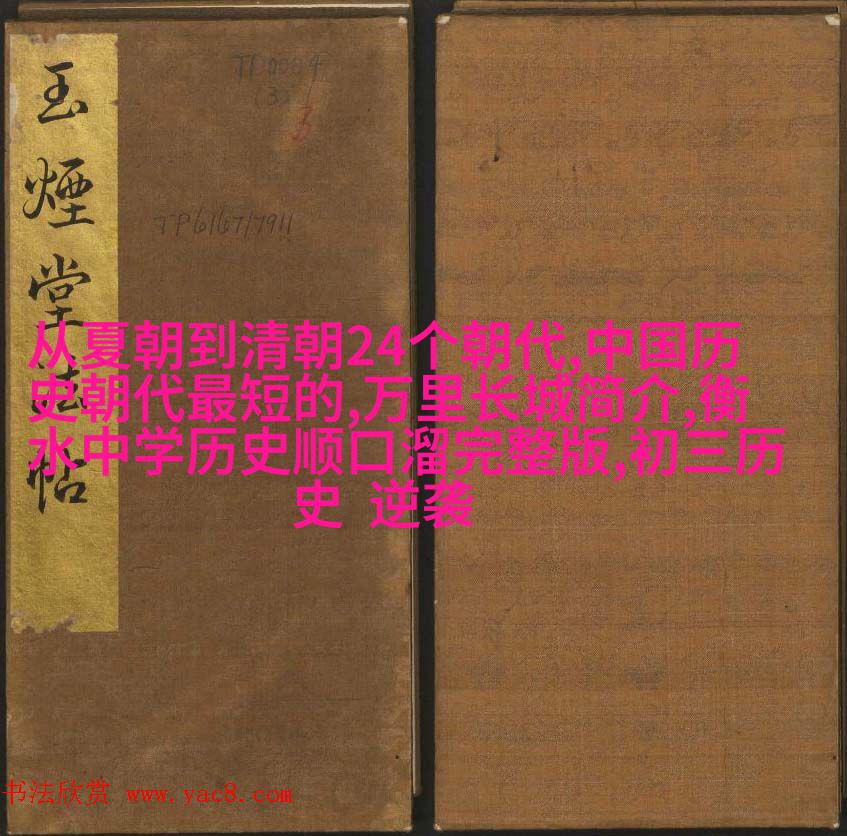 玉煙堂法帖
TP 0004
(3)
3
TP6167/7911
从夏朝到清朝24个朝代,中国历
史朝代最短的,万里长城简介,衡
水中学历史顺口溜完整版,初三历
史 逆袭
书法欣赏 www.yac8.com